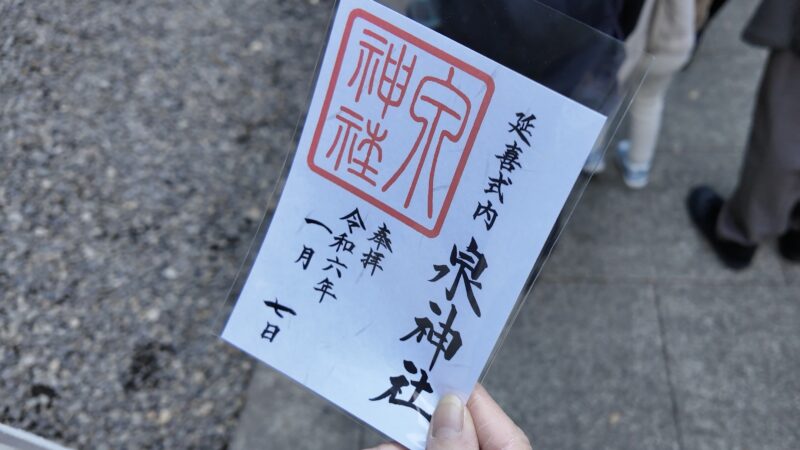 延喜式内
泉神社
泉
神社
奉拝
令和六年
一月
七日